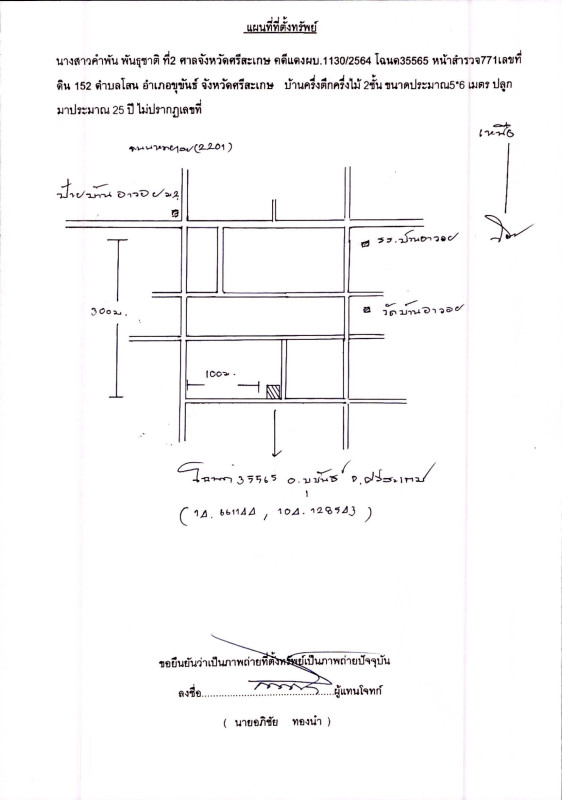 แผนที่ที่ตั้งทรัพย์
นางสาวคำพัน พันธุชาติ ที่2 ศาลจังหวัดศรีสะเกษ คดีแดงผบ.1130/2564 โฉนด35565 หน้าสำรวจ771เลขที่
ดิน 152 ตำบลโสน อำเภอขุขันธ์ จังหวัดศรีสะเกษ บ้านครึ่งตึกครึ่งไม้ 2ชั้น ขนาดประมาณ5*6 เมตร ปลูก
มาประมาณ 25 ปี ไม่ปรากฏเลขที่
เหนือ
(2201)
ป้ายบ้านอาวอย ม.2
รร.บ้านอาวอย
300ม.
วัดบ้านอาวอย
100ม.
โฉนด 35565 อ.ขุขันธ์ จ.ศรีสะเกษ
(14.661144, 104.128543)
ขอยืนยันว่าเป็นภาพถ่ายที่ตั้งทรัพย์เป็นภาพถ่ายปัจจุบัน
ลงชื่อ..........................................ผู้แทนโจทก์
( นายอภิชัย ทองนำ )